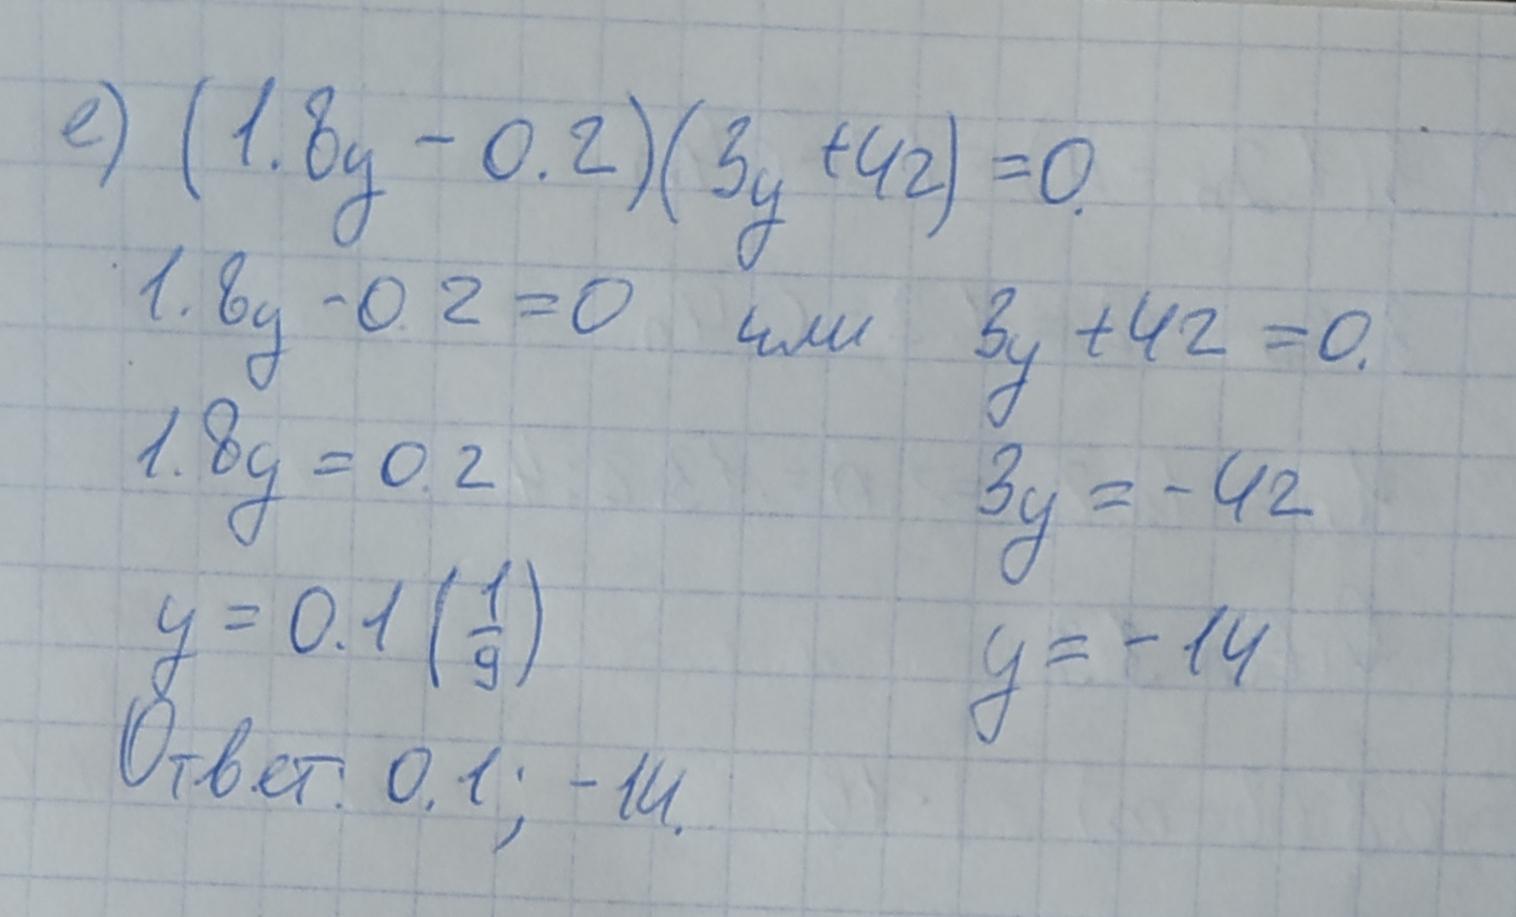 е) (1.8y - 0.2)(3y + 42) = 0.
1.8y - 0.2 = 0 или 3y + 42 = 0.
1.8y = 0.2 3y = - 42
y = 0.1 (1/9) y = - 14
Ответ: 0.1; - 14.